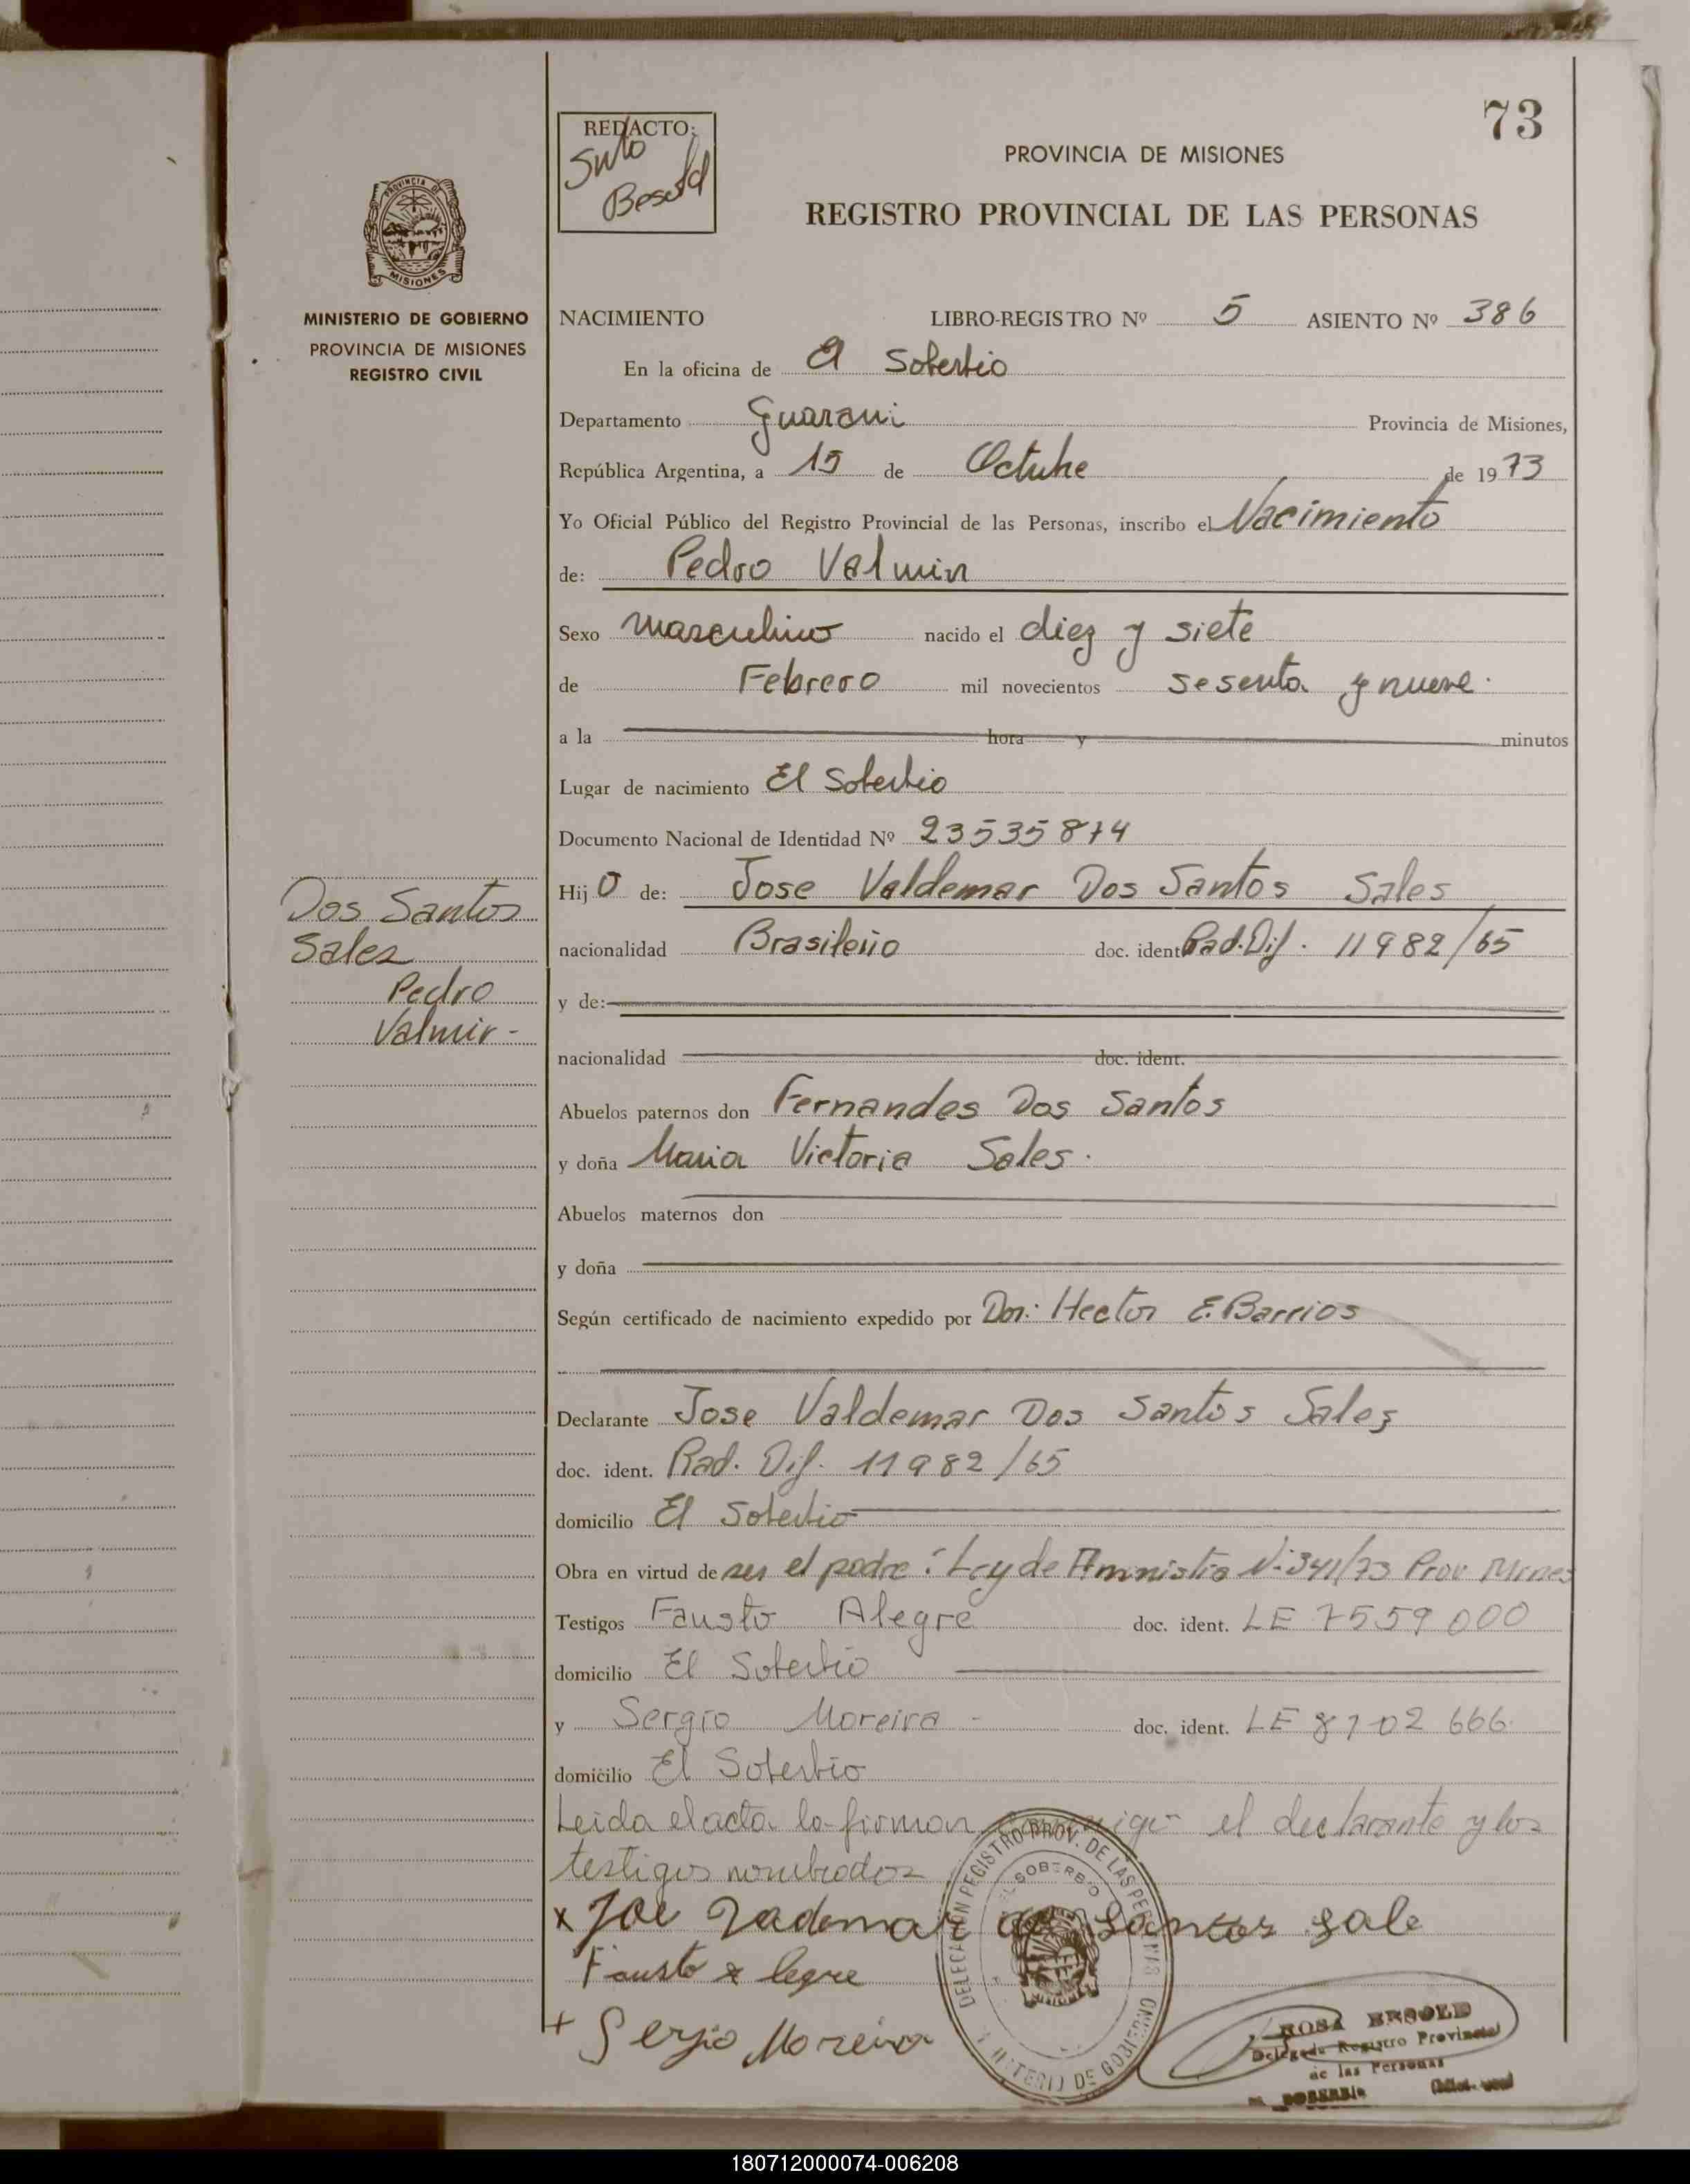 73
REDACTO:
Besold
PROVINCIA DE MISIONES
REGISTRO PROVINCIAL DE LAS PERSONAS
PROVINCIA DE
MISIONES
MINISTERIO DE GOBIERNO
PROVINCIA DE MISIONES
REGISTRO CIVIL
NACIMIENTO LIBRO-REGISTRO Nº 5 ASIENTO Nº 386
En la oficina de El Soberbio
Departamento Guarani Provincia de Misiones,
República Argentina, a 15 de Octubre de 1973
Yo Oficial Público del Registro Provincial de las Personas, inscribo el Nacimiento
de: Pedro Valmir
Sexo masculino nacido el diez y siete
de Febrero mil novecientos sesenta y nueve.
a la hora y minutos
Lugar de nacimiento El Soberbio
Documento Nacional de Identidad Nº 23535874
Hijo de: Jose Valdemar Dos Santos Sales
nacionalidad Brasileño doc. ident. Rad. Dif. 11982/65
y de:
nacionalidad doc. ident.
Dos Santos
Sales
Pedro
Valmir-
Abuelos paternos don Fernandes Dos Santos
y doña Maria Victoria Sales.
Abuelos maternos don
y doña
Según certificado de nacimiento expedido por Dor: Hector E. Barrios
Declarante Jose Valdemar Dos Santos Sales
doc. ident. Rad. Dif. 11982/65
domicilio El Soberbio
Obra en virtud de ser el padre: Ley de Aministia Nº 341/73 Prov
Testigos Fausto Alegre doc. ident. LE 7559000
domicilio El Soberbio
y Sergio Moreira - doc. ident. LE 8702666.
domicilio El Soberbio
Leida el acta la firman conmigo el declarante y los
testigos nombrados
x Joe Vademar dos Santos Sale
Fausto Alegre
+ Sergio Moreira
DELEGACIÓN REGISTRO PROV. DE LAS PERSONAS
EL SOBERBIO
MINISTERIO DE GOBIERNO
MISIONES
ROSA BESOLD
Delegada Registro Provincial
de las Personas
EL SOBERBIO
180712000074-006208